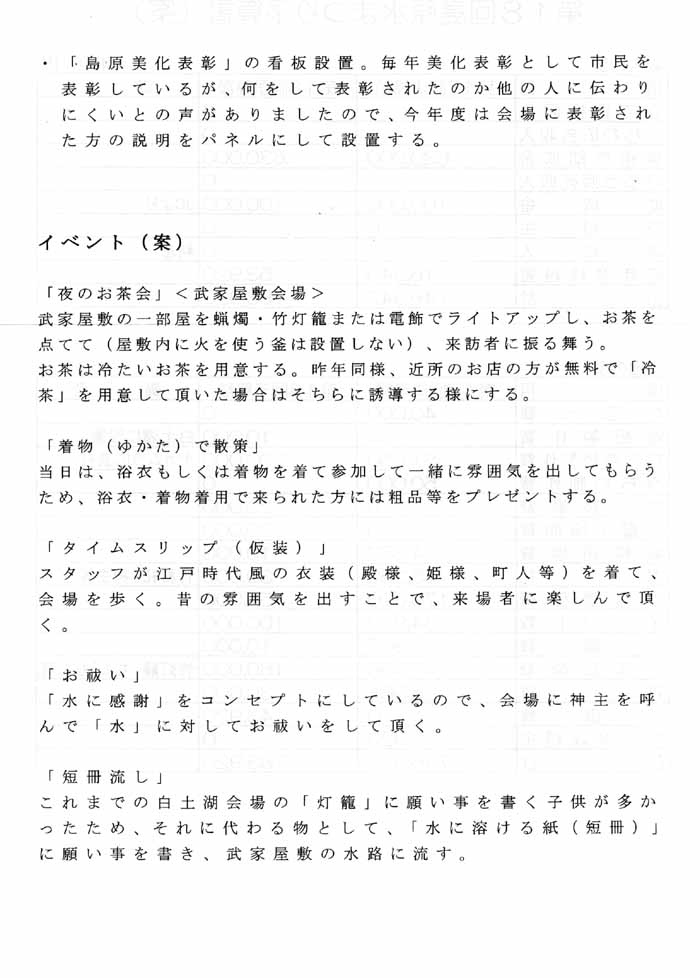 ・「島原美化表彰」の看板設置。毎年美化表彰として市民を
表彰しているが、何をして表彰されたのか他の人に伝わり
にくいとの声がありましたので、今年度は会場に表彰され
た方の説明をパネルにして設置する。
イベント（案）
「夜のお茶会」＜武家屋敷会場＞
武家屋敷の一部屋を蝋燭・竹灯籠または電飾でライトアップし、お茶を
点てて（屋敷内に火を使う釜は設置しない）、来訪者に振る舞う。
お茶は冷たいお茶を用意する。昨年同様、近所のお店の方が無料で「冷
茶」を用意して頂いた場合はそちらに誘導する様にする。
「着物（ゆかた）で散策」
当日は、浴衣もしくは着物を着て参加して一緒に雰囲気を出してもらう
ため、浴衣・着物着用で来られた方には粗品等をプレゼントする。
「タイムスリップ（仮装）」
スタッフが江戸時代風の衣装（殿様、姫様、町人等）を着て、
会場を歩く。昔の雰囲気を出すことで、来場者に楽しんで頂
く。
「お祓い」
「水に感謝」をコンセプトにしているので、会場に神主を呼
んで「水」に対してお祓いをして頂く。
「短冊流し」
これまでの白土湖会場の「灯籠」に願い事を書く子供が多か
ったため、それに代わる物として、「水に溶ける紙（短冊）」
に願い事を書き、武家屋敷の水路に流す。